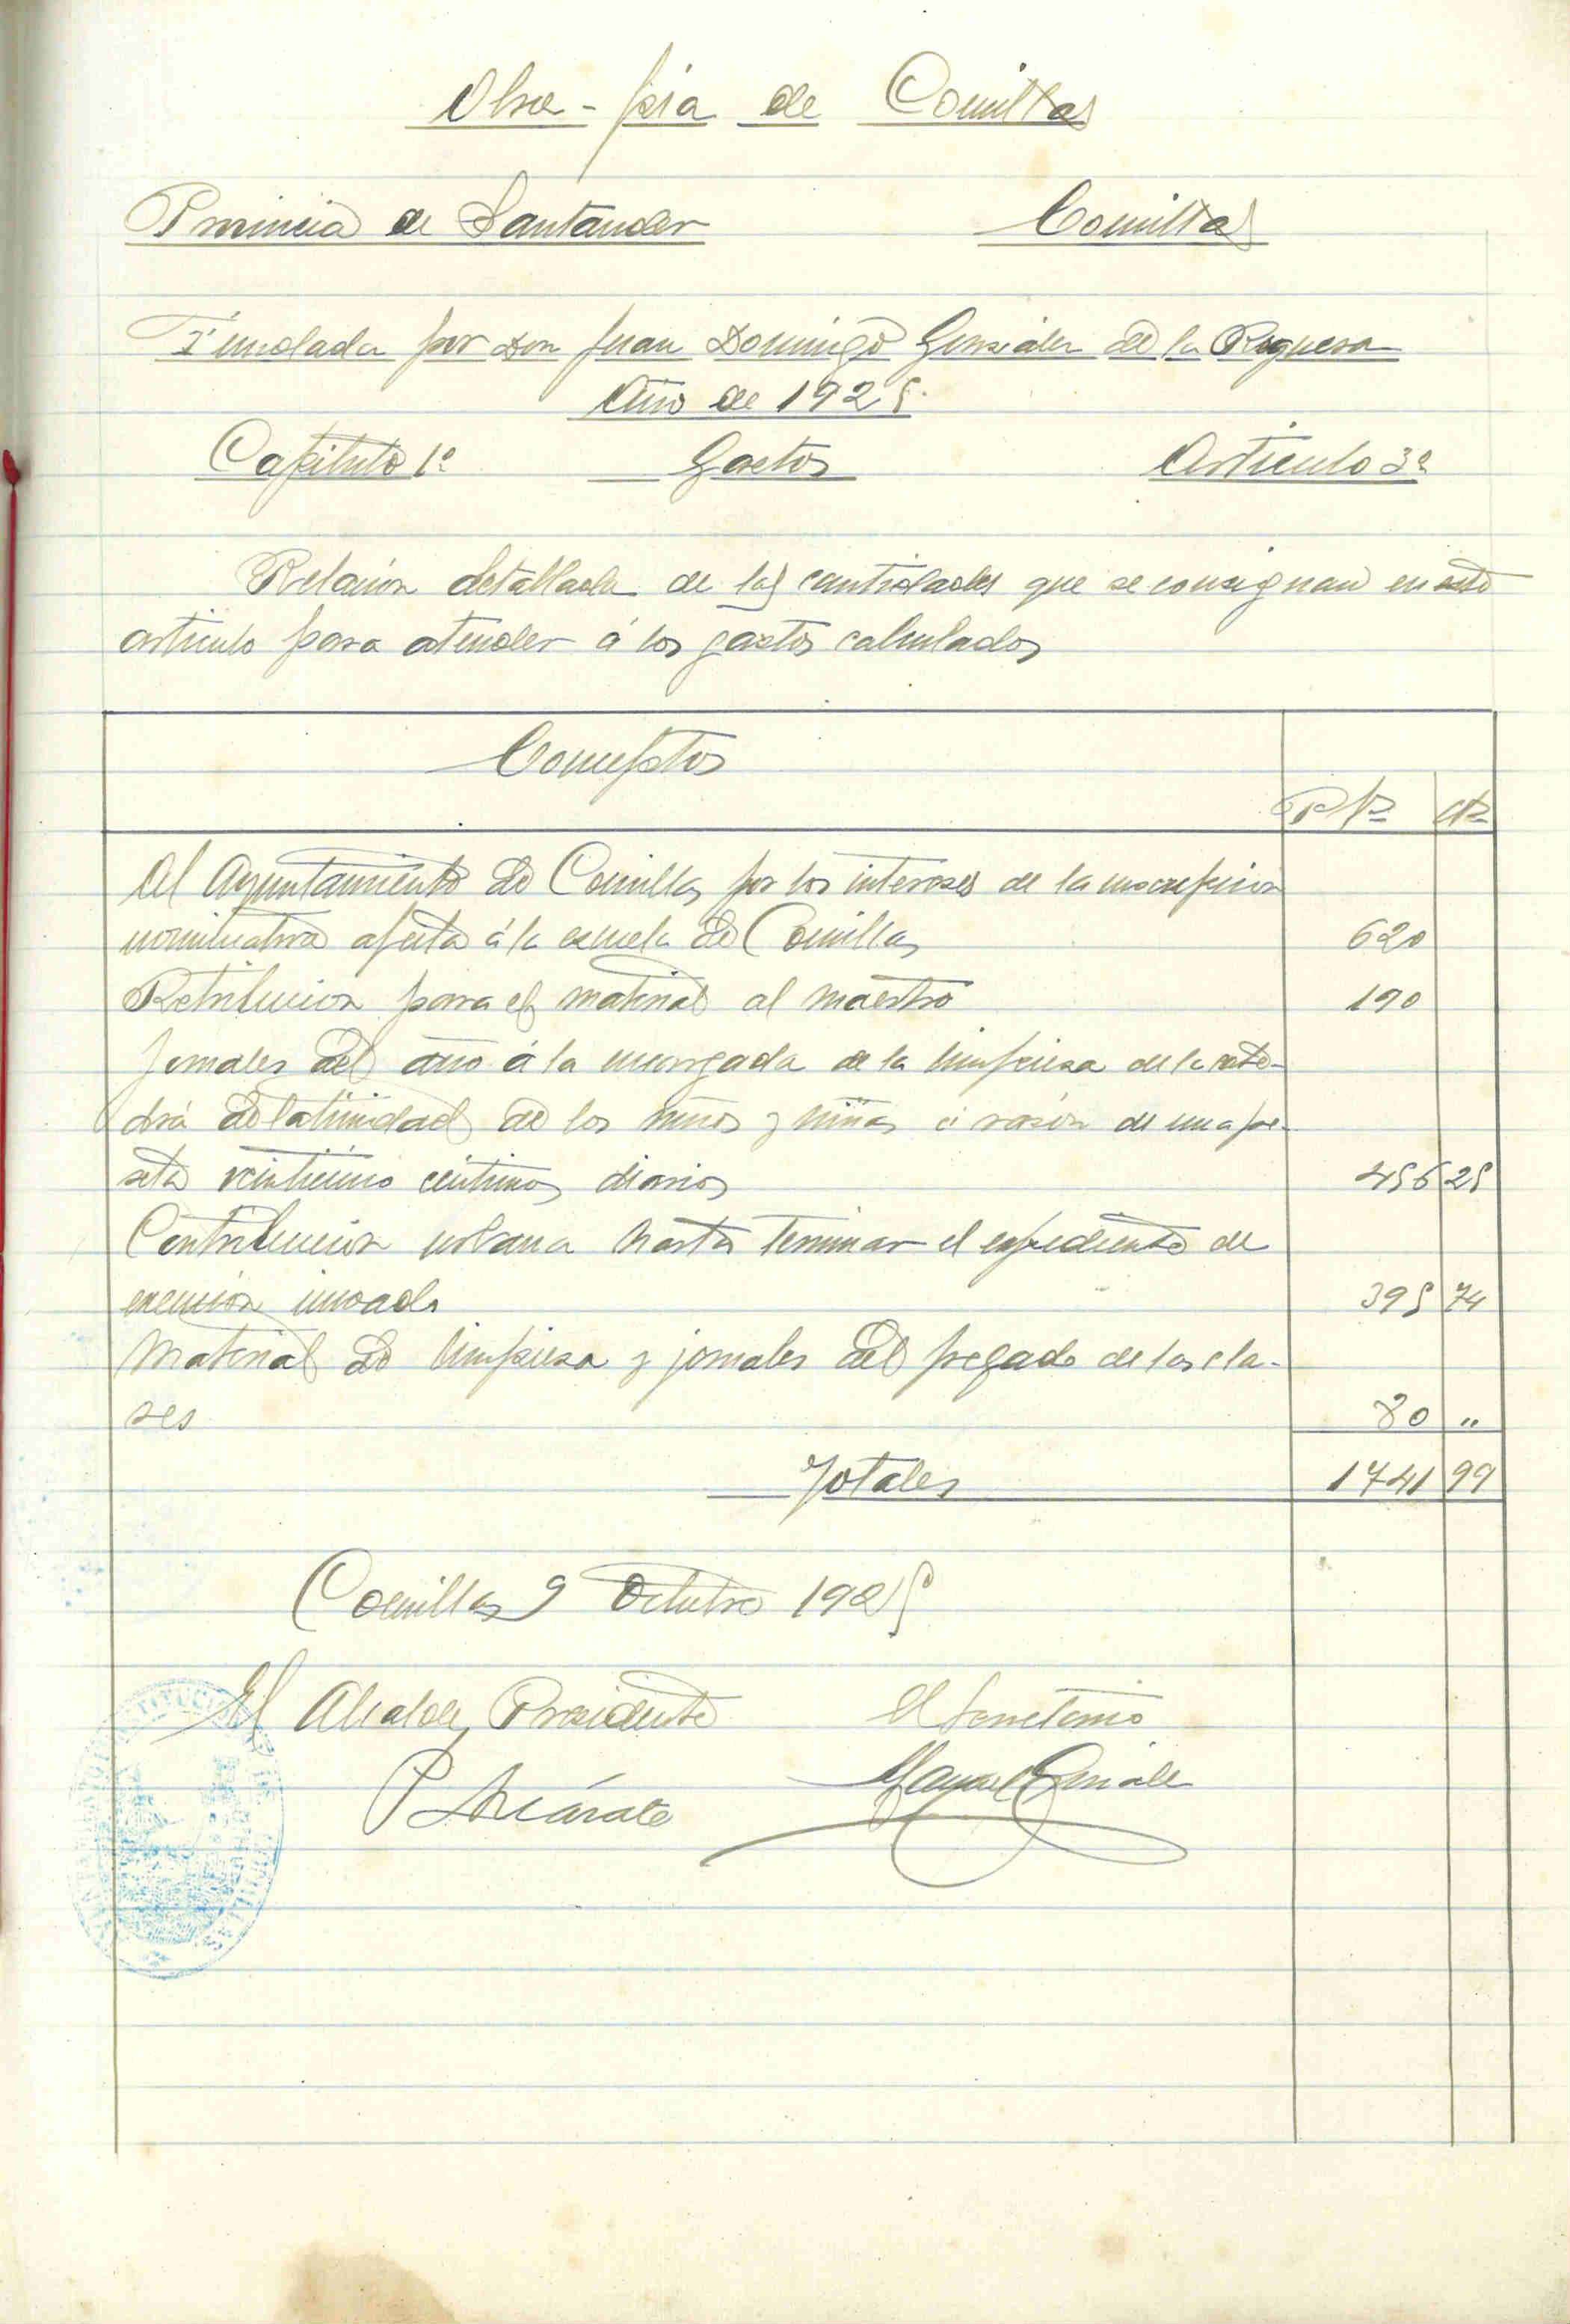 Obra-pia de Comillas
Provincia de Santander Comillas
Fundada por Don Juan Domingo González de la Reguera
Año de 1925.
Capitulo 1º Gastos Articulo 3º
Relacion detallada de las cantidades que se consignan en este
articulo para atender á los gastos calculados
Conceptos
Pts Cts
Al Ayuntamiento de Comillas por los intereses de la inscripcion
nominativa afecta á la escuela de Comillas 620
Retribucion para el material al maestro 190
Jornales del año á la encargada de la limpieza de la cate-
dra de latinidad de los niños y niñas á razón de una pe-
seta veinticinco centimos diarios 456 25
Contribucion urbana hasta terminar el expediente de
exención incoado 395 74
Material de limpieza y jornales del fregado de las cla-
ses 80 "
Totales 1741 99
Comillas 9 Octubre 1925
El Alcalde, Presidente El Secretario